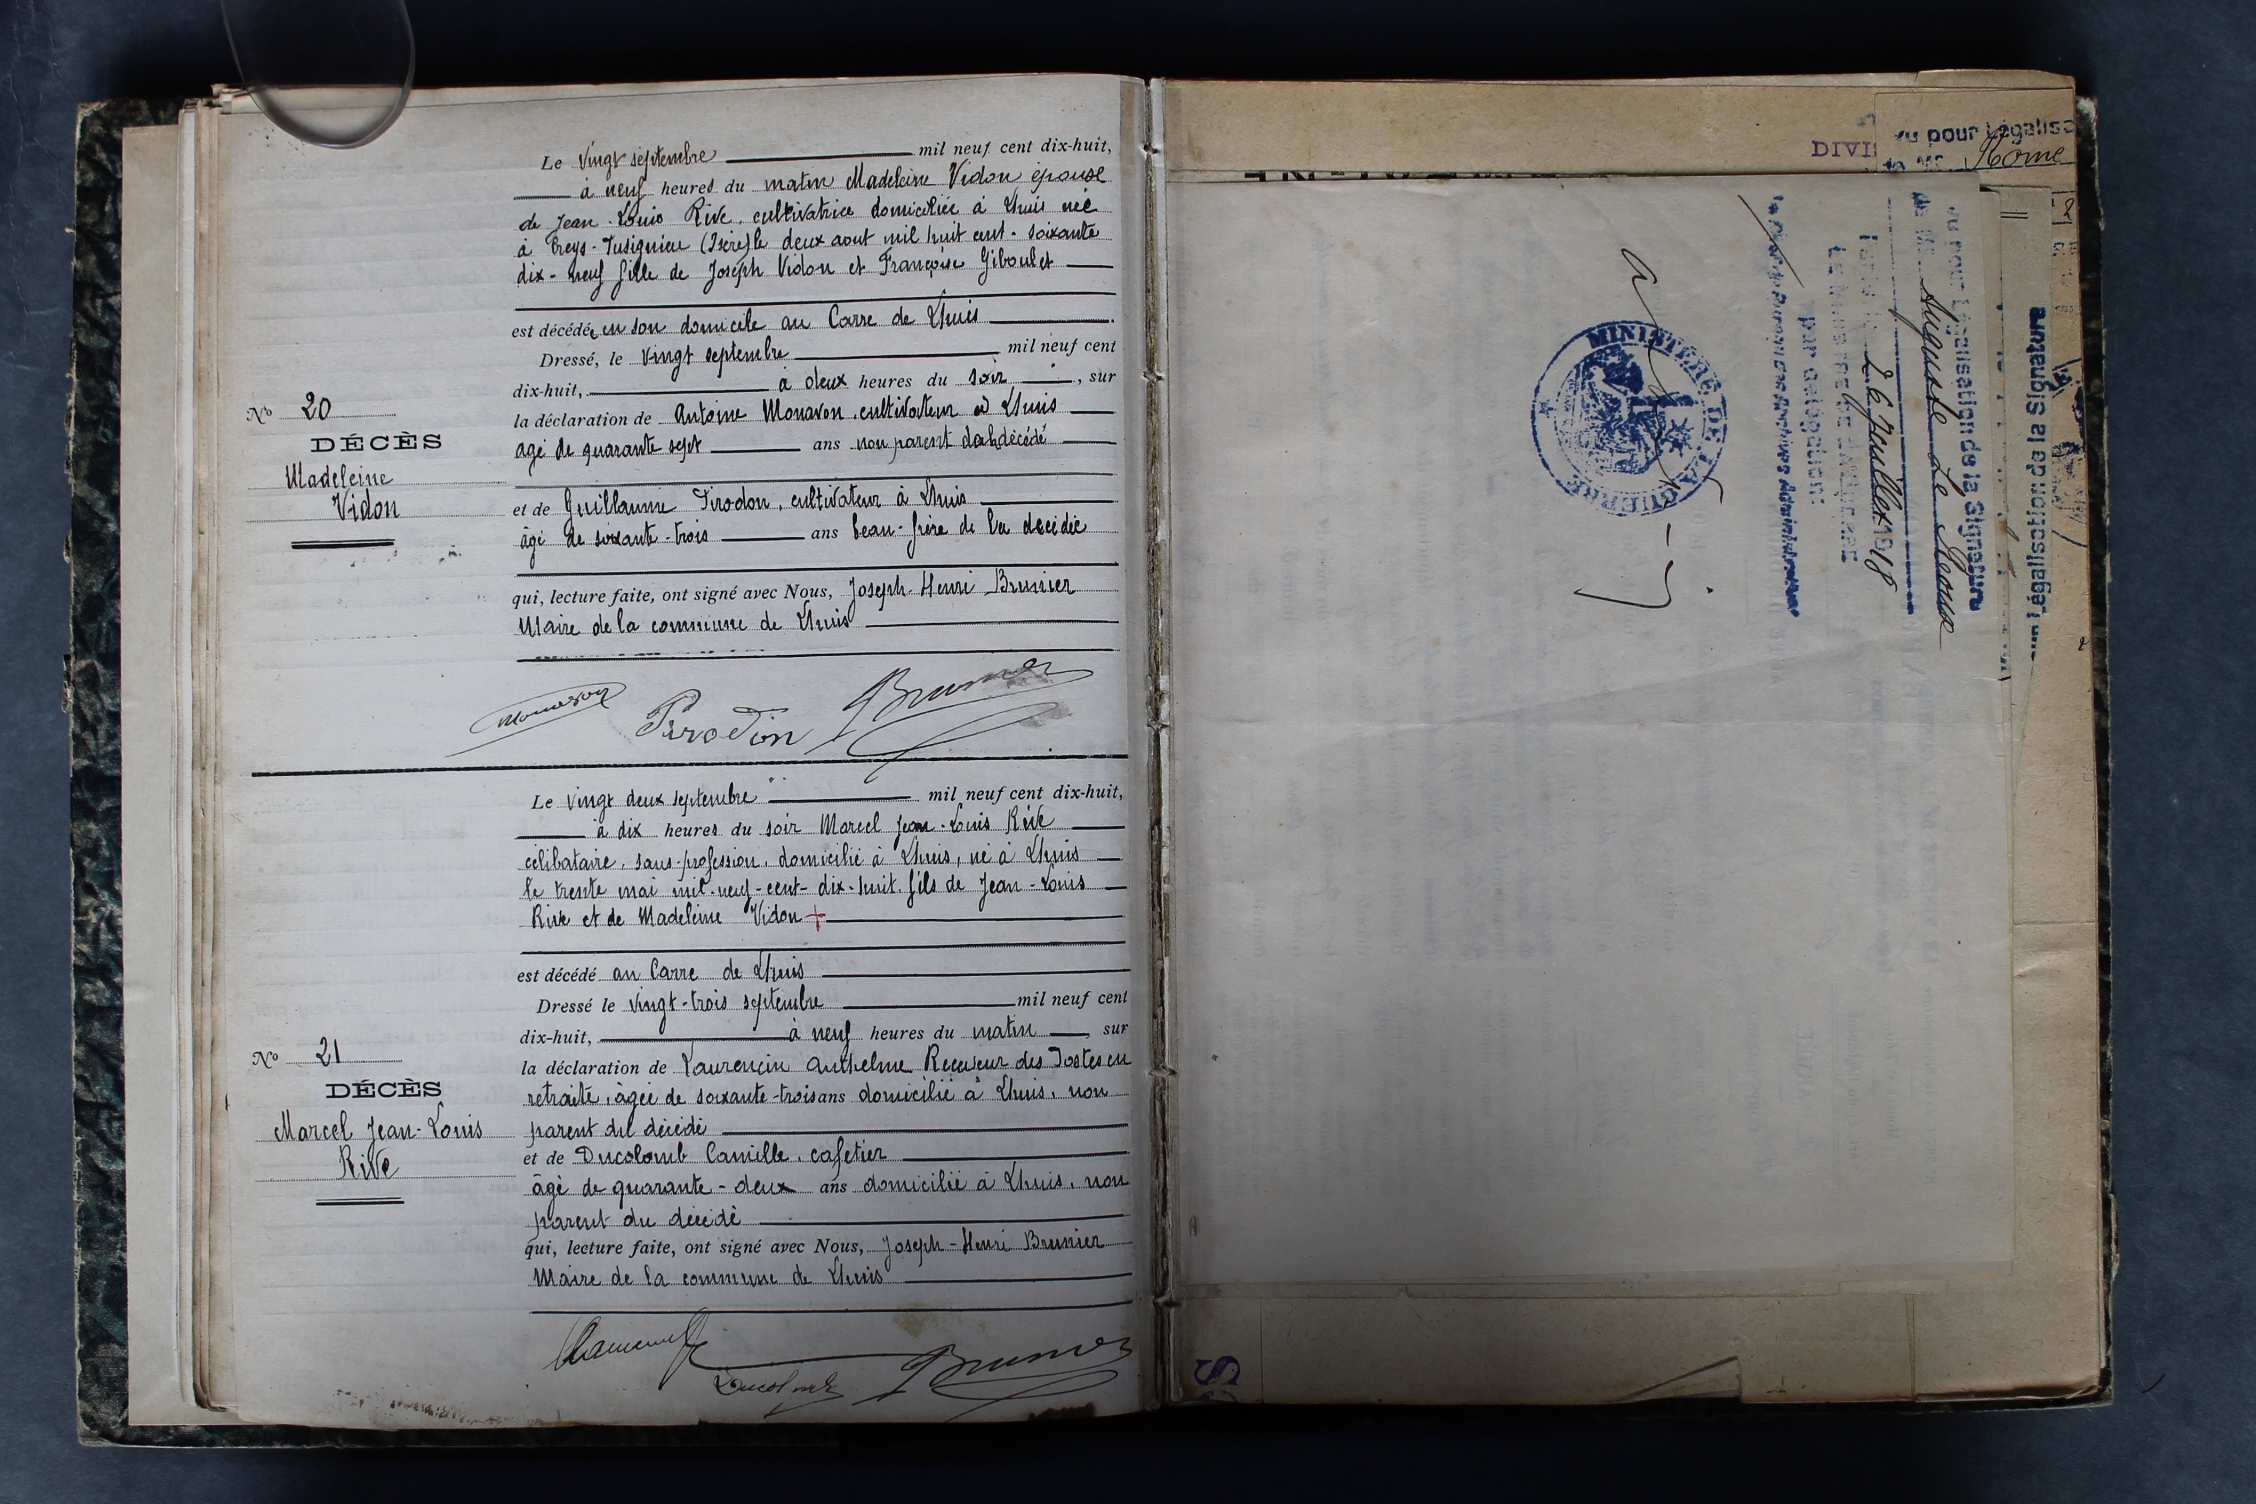 Le vingt septembre mil neuf cent dix-huit,
à neuf heures du matin Madeleine Vidon épouse
de Jean-Louis Rive, cultivatrice domiciliée à Lhuis née
à Creys-Pusignieu (Isère) le deux aout mil huit cent-soixante
dix-neuf fille de Joseph Vidon et Françoise Giboulet
est décédée en son domicile au Carre de Lhuis
Dressé, le vingt septembre mil neuf cent
dix-huit, à deux heures du soir, sur
la déclaration de Antoine Monavon, cultivateur à Lhuis
agé de quarante sept ans non parent de la décédé
N° 20
DÉCÈS
Madeleine
Vidon
et de Guillaume Tirodon, cultivateur à Lhuis
âgé de soixante-trois ans beau-frère de la décédée
qui, lecture faite, ont signé avec Nous, Joseph-Henri Brunier
Maire de la commune de Lhuis
Monavon Tirodon Brunier
Le vingt deux septembre mil neuf cent dix-huit,
à dix heures du soir Marcel Jean-Louis Rive
célibataire, sans-profession, domicilié à Lhuis, né à Lhuis
le trente mai mil-neuf-cent-dix-huit, fils de Jean-Louis
Rive et de Madeleine Vidon +
est décédé au Carre de Lhuis
Dressé le vingt-trois septembre mil neuf cent
dix-huit, à neuf heures du matin, sur
la déclaration de Laurencin Anthelme Receveur des Postes en
retraité, âgée de soixante-trois ans domicilié à Lhuis, non
parent du décédé
N° 21
DÉCÈS
Marcel Jean-Louis
Rive
et de Ducolomb Camille, cafetier
âgé de quarante-deux ans domicilié à Lhuis, non
parent du décédé
qui, lecture faite, ont signé avec Nous, Joseph-Henri Brunier
Maire de la commune de Lhuis
Ducolomb Brunier
DIVI
Vu pour Légalisa
Rome
Vu pour Légalisation de la Signature
de M. Auguste Le
Juillet 1918
par délégation
Le Chef du Bureau des Archives Administratives
MINISTÈRE DE LA GUERRE
our Légalisation de la Signature